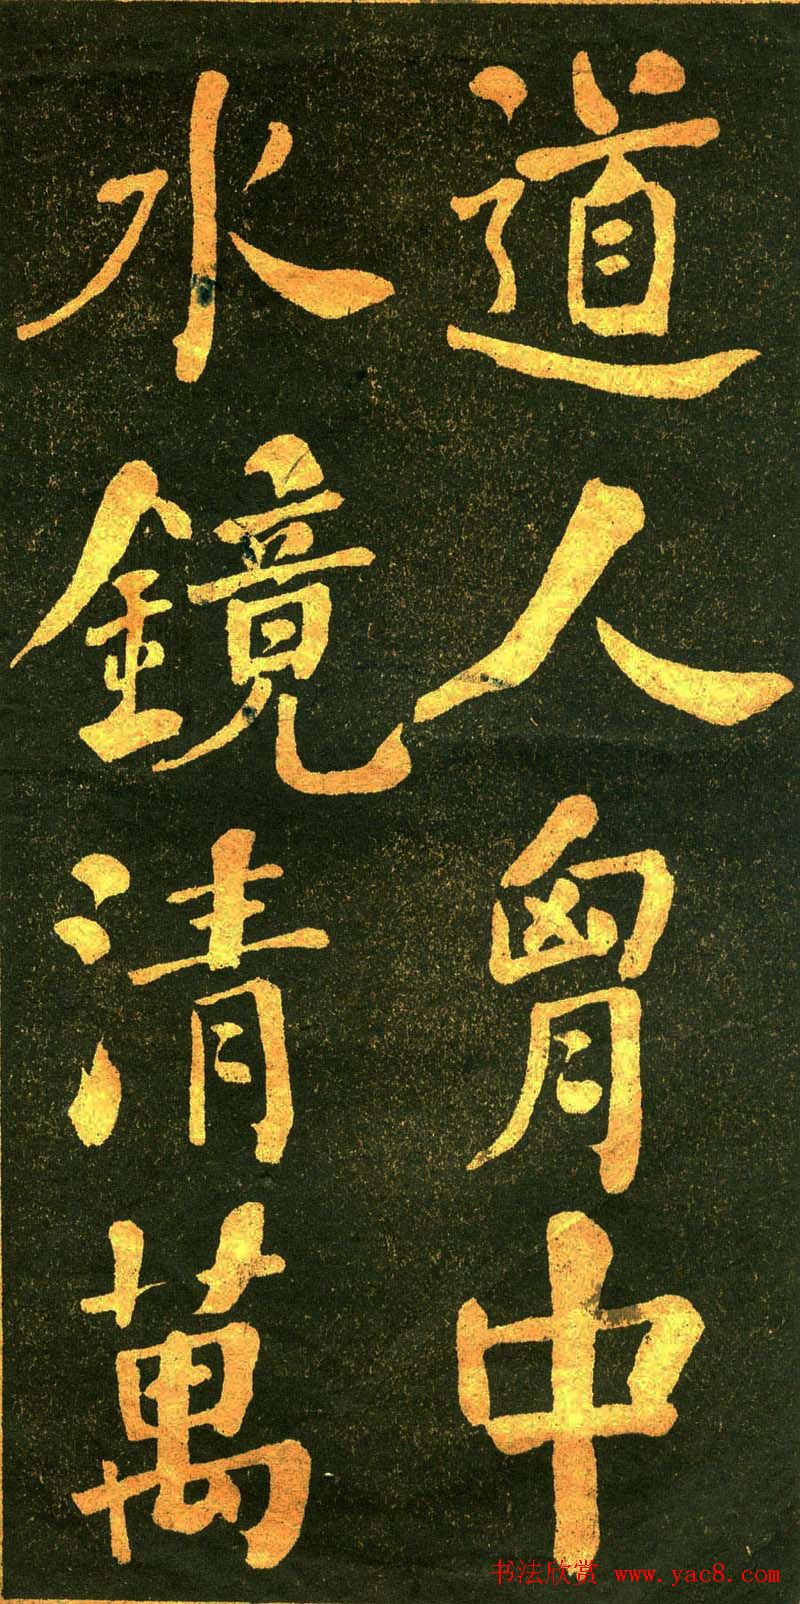 道人胷中
水鏡清萬
书法欣赏 www.yac8.com